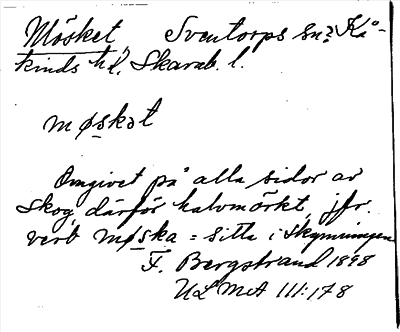 Mösket Sventorps sn? Kå-
kinds hd, Skarab. l.
møskət
Omgivet på alla sidor av
skog, därför halvmörkt, jfr.
verb møska = sitta i skymningen
F. Bergstrand 1898
ULMA 111:178